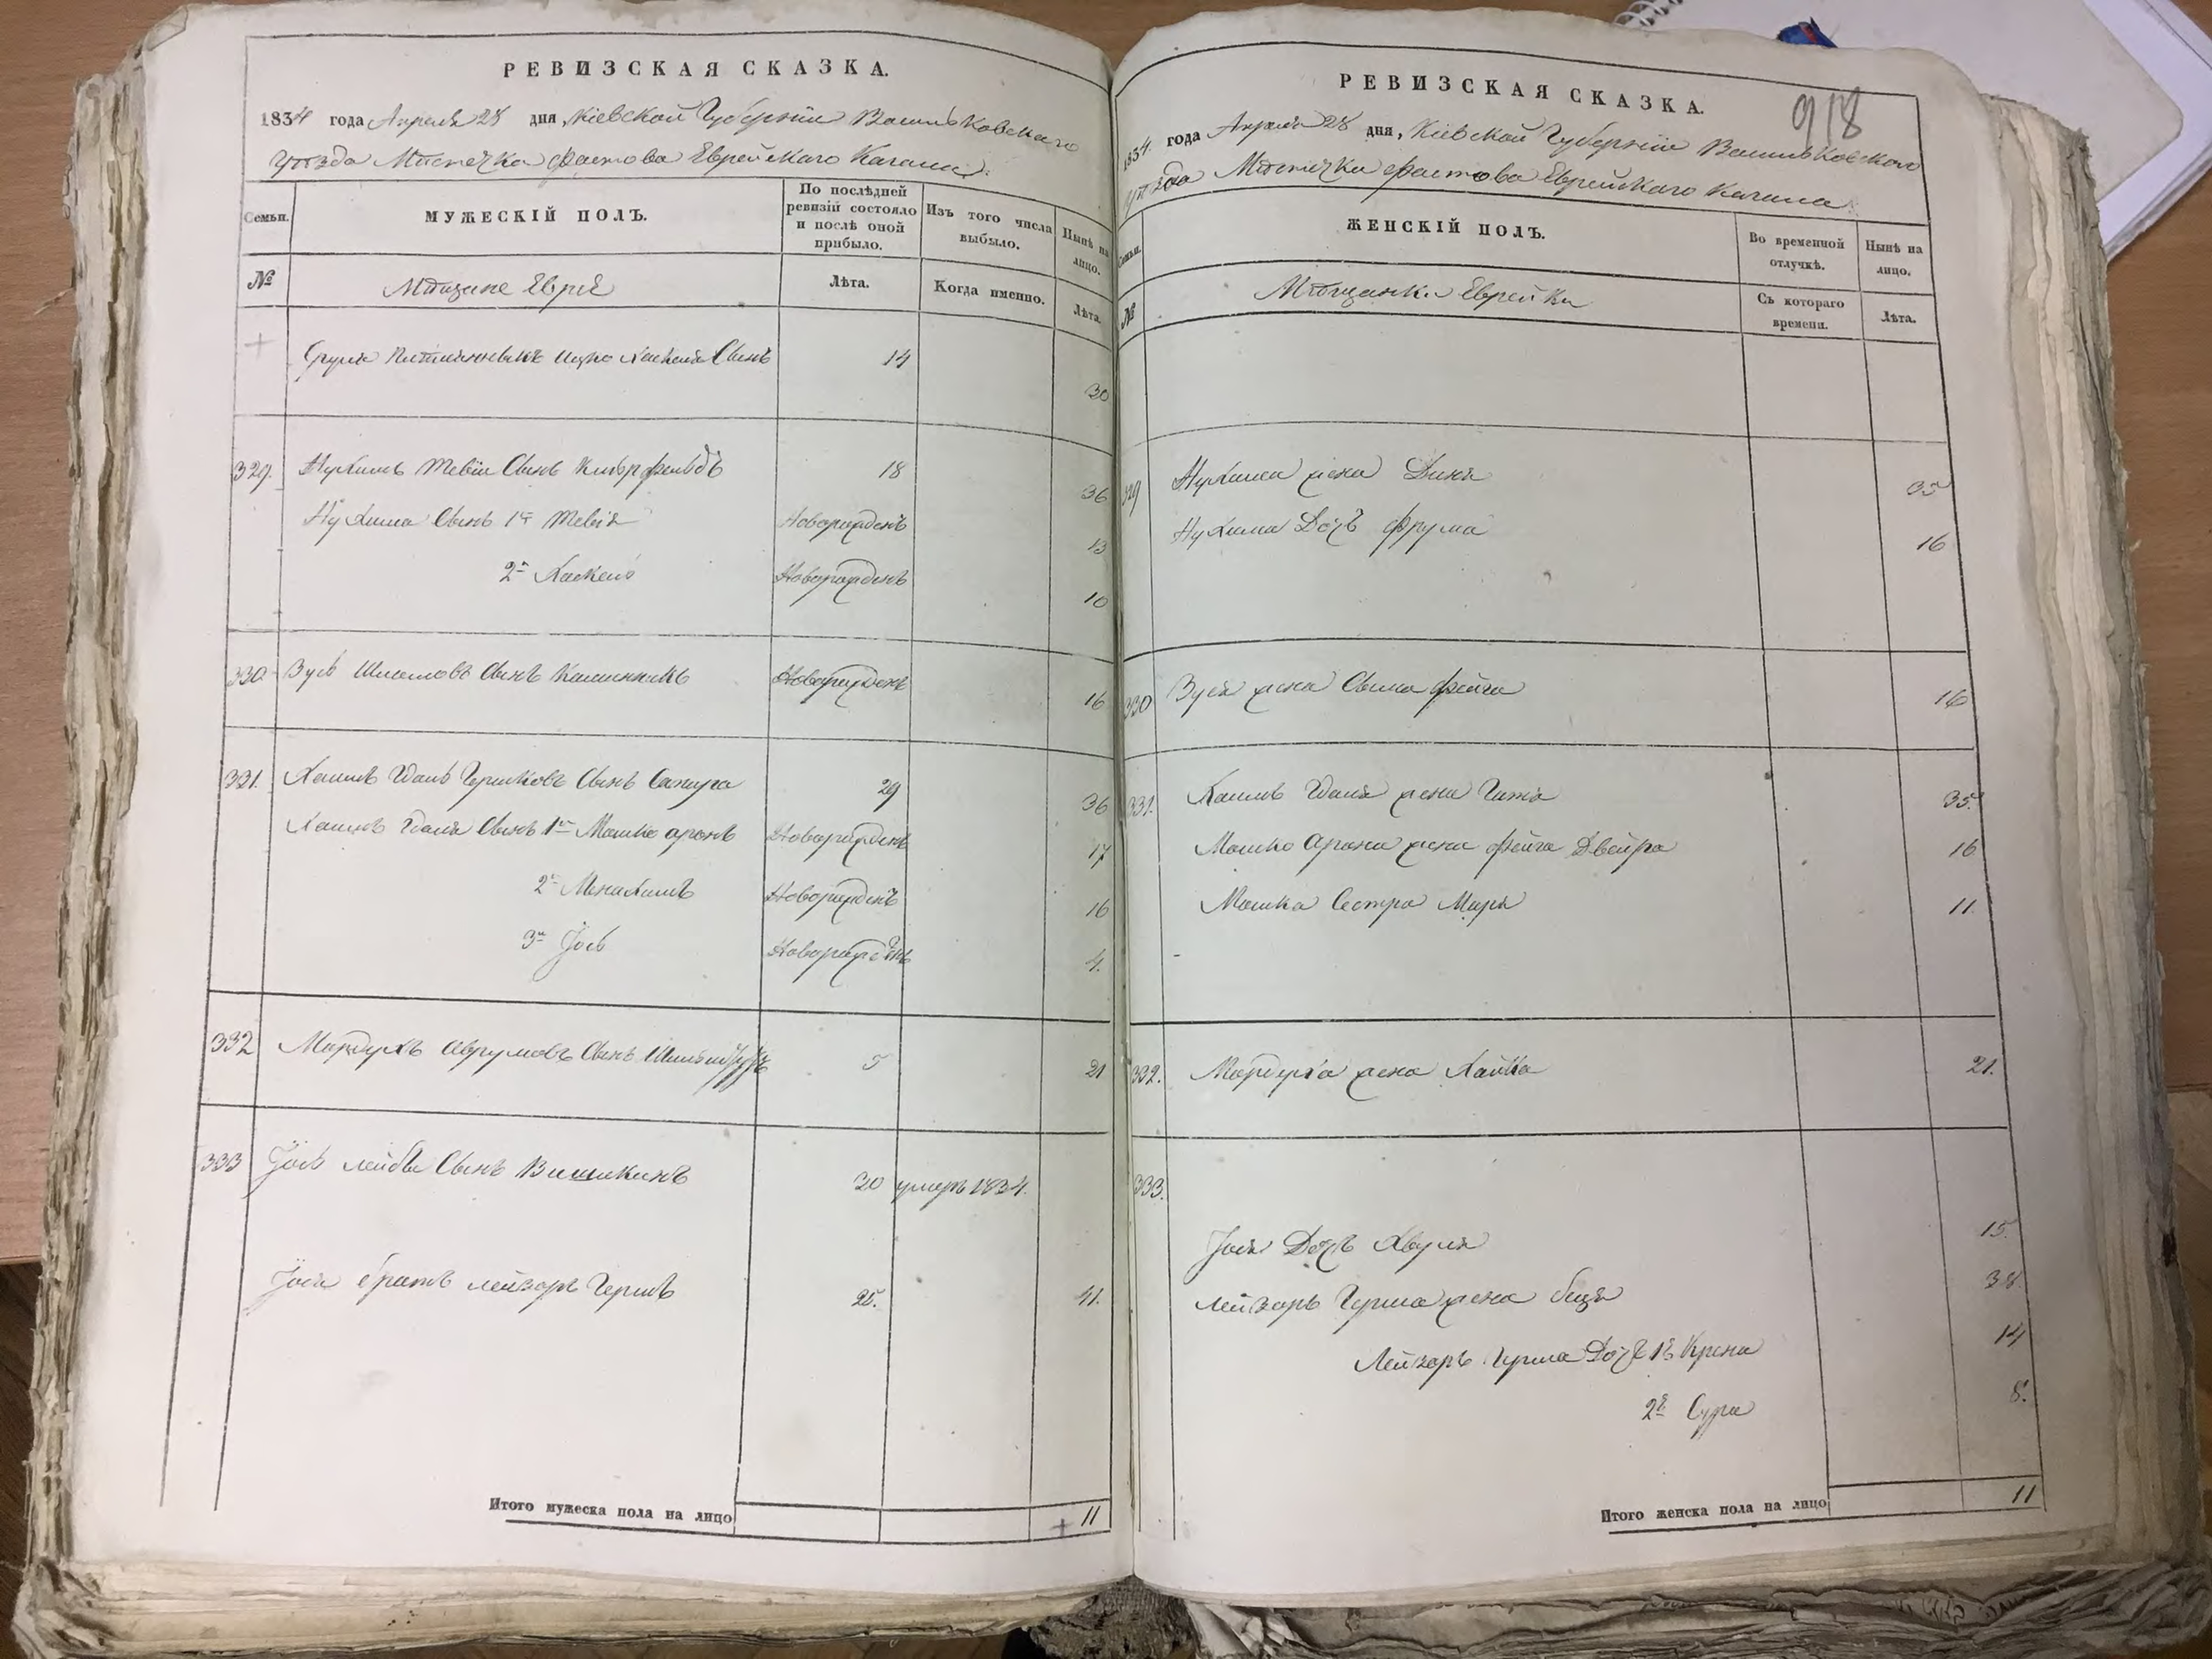 РЕВИЗСКАЯ СКАЗКА.
1834 года Апреля 28 дня, Кіевской Губерніи Васильковскаго
уѣзда Мѣстечка Фастова Еврейскаго Кагала.
Семьи.
МУЖЕСКІЙ ПОЛЪ.
По послѣдней ревизіи состояло и послѣ оной прибыло.
Изъ того числа выбыло.
Нынѣ на лицо.
№
Мѣщане Евреи
Лѣта.
Когда именно.
Лѣта.
Сруля Ицко Хаскеля Сынъ 14 30
329. Нухимъ Тевіи Сынъ 18 36
Нухима Сынъ 1й Тевія Новорожденъ 13
2й Хаскель Новорожденъ 10
330 Зусь Шмулловъ Сынъ Новорожденъ 16
331. Хаимъ Гдаль Гершковъ Сынъ Сапира 29 36
Хаимъ Гдаля Сынъ 1й Мошко Аронъ Новорожденъ 17
2й Менахимъ Новорожденъ 16
3й Іось Новорожденъ 4.
332 Мордухъ Аврумовъ Сынъ 5 21
333 Іось Лейбы Сынъ Вишикинъ 30 умеръ 1834.
Іося братъ Лейзоръ Гершъ 25. 41.
Итого мужеска пола на лицо 11
918
РЕВИЗСКАЯ СКАЗКА.
1834 года Апреля 28 дня, Кіевской Губерніи Васильковскаго
уѣзда Мѣстечка Фастова Еврейскаго Кагала
Семьи.
ЖЕНСКІЙ ПОЛЪ.
Во временной отлучкѣ.
Нынѣ на лицо.
№
Мѣщанки Еврейки
Съ котораго времени.
Лѣта.
329 Нухима жена Диня 35
Нухима Дочь Фрума 16
330 Зуся жена Сима Фейга 16
331. Хаимъ Гдаля жена Гитя 35.
Мошко Арона жена Фейга Двейра 16
Мошка Сестра Маря 11.
332. Мордуха жена Хайка 21.
333.
Іося Дочь Хвуля 15.
Лейзоръ Герша жена 38.
Лейзоръ Герша Дочь 1я Крена 14
2я Сура 8.
Итого женска пола на лицо 11